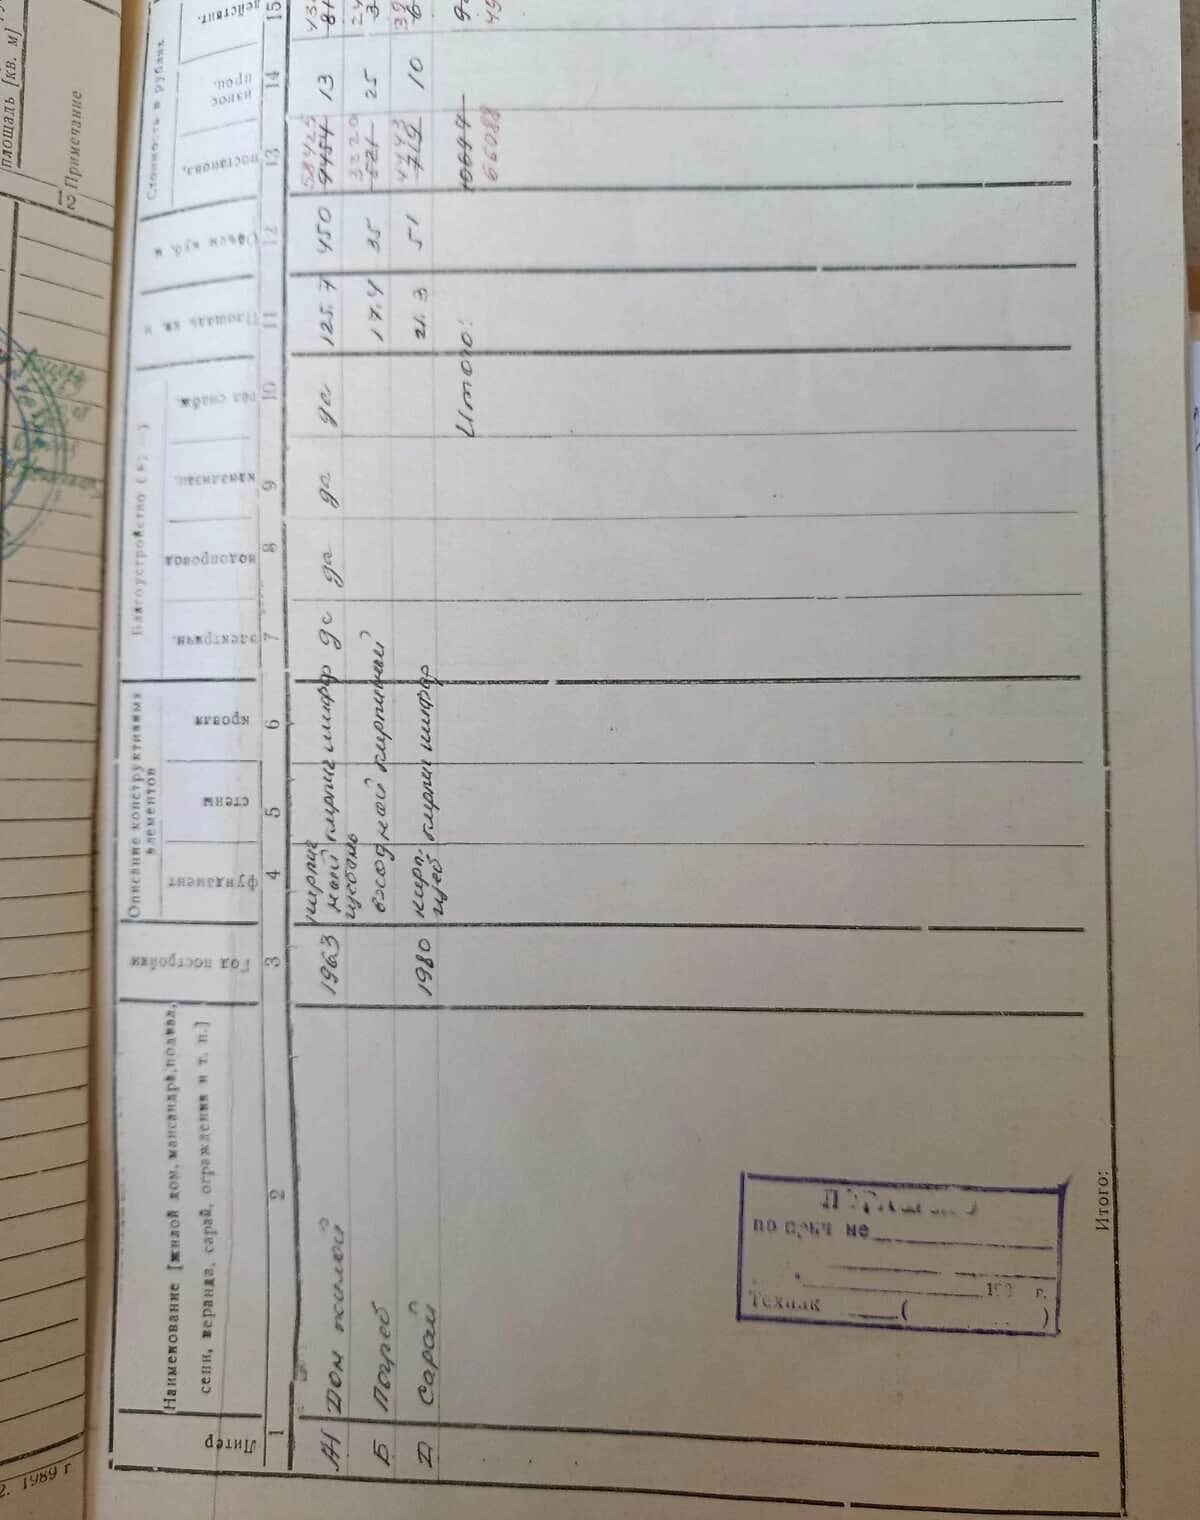 площадь [кв. м]
12 Примечание
2. 1989 г
Литер
Наименование [жилой дом, мансарда, подвал,
сени, веранда, сарай, ограждения и т. п.]
Год постройки
Описание конструктивных
элементов
фундамент
стены
кровля
Благоустройство (+; —)
электрич.
водопровод
канализац.
газ снабж.
Площадь кв. м
Объем куб. м
Стоимость в рублях
восстанов.
износ
проц.
действит.
1 2 3 4 5 6 7 8 9 10 11 12 13 14 15
Дом жилой 1963 кирпич шифер да да да да 125.7 450 58425 9454 13
щебень
Б Погреб входной кирпичный 17.4 35 3220 521 25
Д Сарай 1980 кирп. кирпич шифер 21.3 51 4443 719 10
щеб
Итого: 66088
Техник ( )
г.
Итого: